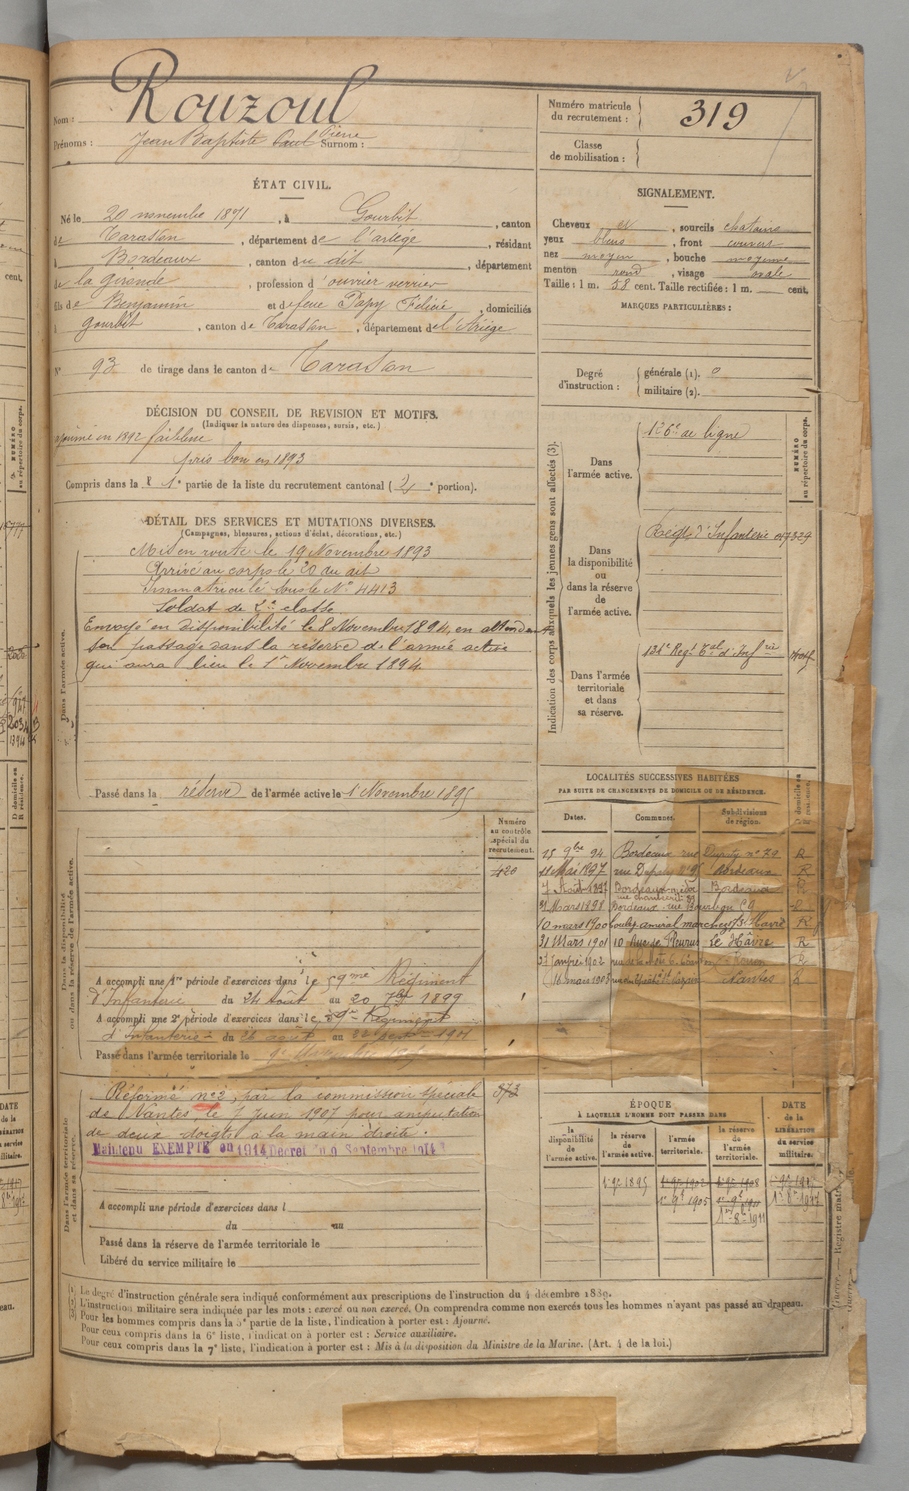 Nom : Rouzoul
Prénoms : Jean Baptiste Paul Pierre Surnom :
Numéro matricule du recrutement : 319
Classe de mobilisation :
ÉTAT CIVIL.
Né le 20 novembre 1871, à Gourbit, canton
de Tarascon, département de l'ariège, résidant
à Bordeaux, canton du dit, département
de la gironde, profession d'ouvrier verrier
fils de Benjamin et de feue Papy Félicie, domiciliés
à gourbit, canton de Tarascon, département de l'Ariège
N° 93 de tirage dans le canton de Tarascon
SIGNALEMENT.
Cheveux et, sourcils chatains
yeux bleus, front couvert
nez moyen, bouche moyenne
menton rond, visage ovale
Taille : 1 m. 58 cent. Taille rectifiée : 1 m. cent.
MARQUES PARTICULIÈRES :
Degré d'instruction : générale (1). 0
militaire (2).
DÉCISION DU CONSEIL DE REVISION ET MOTIFS.
(Indiquer la nature des dispenses, sursis, etc.)
ajourné en 1892 faiblesse
pris bon en 1893
Compris dans la 1e partie de la liste du recrutement cantonal (2e portion).
DÉTAIL DES SERVICES ET MUTATIONS DIVERSES.
(Campagnes, blessures, actions d'éclat, décorations, etc.)
Dans l'armée active.
Mis en route le 19 Novembre 1893
Arrivé au corps le 20 du dit
Immatriculé sous le N° 4413
Soldat de 2e classe
Envoyé en disponibilité le 8 Novembre 1894, en attendant
son passage dans la réserve de l'armée active
qui aura lieu le 1er Novembre 1894
Passé dans la réserve de l'armée active le 1er Novembre 1895
Indication des corps auxquels les jeunes gens sont affectés (3).
NUMÉRO au répertoire du corps.
Dans l'armée active.
126e de ligne
Dans la disponibilité ou dans la réserve de l'armée active.
d'Infanterie
Dans l'armée territoriale et dans sa réserve.
134e Regt Tal d'Infrie
LOCALITÉS SUCCESSIVES HABITÉES
PAR SUITE DE CHANGEMENTS DE DOMICILE OU DE RÉSIDENCE.
Dates. Communes. Subdivisions de région. D domicile ou R résidence.
15 9bre 94 Bordeaux rue n° 79 R
11 Mai 1897 Bordeaux R
7 Août 1897 Bordeaux Bordeaux
31 Mars 1898 Bordeaux rue Bourbon
10 mars 1900 Havre R
31 Mars 1901 10 Rue de Fleurus Le Hâvre R
16 mars 1905 Nantes R
Dans la disponibilité ou dans la réserve de l'armée active.
Numéro au contrôle spécial du recrutement.
420
A accompli une 1re période d'exercices dans le 59me Régiment
d'Infanterie du 24 Août au 20 7bre 1899
A accompli une 2e période d'exercices dans le Régiment
d'Infanterie du 26 août au 1901
Passé dans l'armée territoriale le
Dans l'armée territoriale et dans sa réserve.
873
Réformé n° 2, par la commission spéciale
de Nantes, le 7 juin 1907 pour amputation
de deux doigts à la main droite.
Maintenu EXEMPTE en 1914 Décret du 9 Septembre 1914
A accompli une période d'exercices dans l
du au
Passé dans la réserve de l'armée territoriale le
Libéré du service militaire le
ÉPOQUE
À LAQUELLE L'HOMME DOIT PASSER DANS
la disponibilité de l'armée active. la réserve de l'armée active. l'armée territoriale. la réserve de l'armée territoriale.
DATE de la LIBÉRATION du service militaire.
1er 9bre 1895
1er 9bre 1905
(1) Le degré d'instruction générale sera indiqué conformément aux prescriptions de l'instruction du 4 décembre 1889.
(2) L'instruction militaire sera indiquée par les mots : exercé ou non exercé. On comprendra comme non exercés tous les hommes n'ayant pas passé au drapeau.
(3) Pour les hommes compris dans la 5e partie de la liste, l'indication à porter est : Ajourné.
Pour ceux compris dans la 6e liste, l'indication à porter est : Service auxiliaire.
Pour ceux compris dans la 7e liste, l'indication à porter est : Mis à la disposition du Ministre de la Marine. (Art. 4 de la loi.)